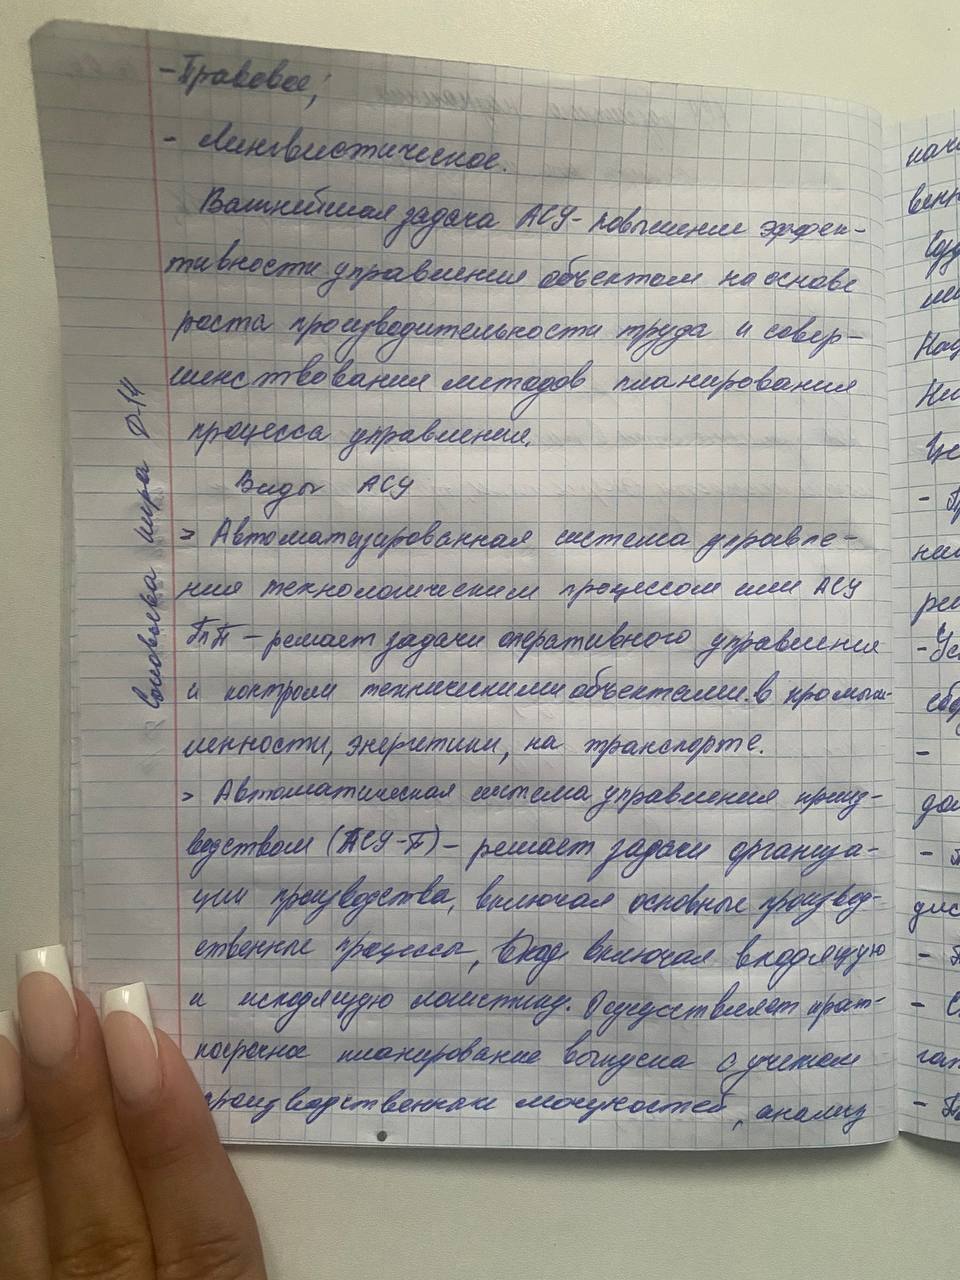 - Правовое;
- Лингвистическое.
Важнейшая задача АСУ - повышение эффек-
тивности управления объектом на основе
роста производительности труда и совер-
шенствования методов планирования
процесса управления.
Виды АСУ
> Автоматизированная система управле-
ния технологическим процессом или АСУ
ТпП - решает задачи оперативного управления
и контроля техническими объектами в промыш-
ленности, энергетики, на транспорте.
> Автоматическая система управления произ-
водством (АСУ-П) - решает задачи организа-
ции производства, включая основные производ-
ственные процессы, включая входящую
и исходящую логистику. Осуществляет крат-
косрочное планирование выпуска с учетом
производственных мощностей, анализ
Соловьева Кира Д-14
нач
венн
Над
- Пр
ния
- Ус
дис